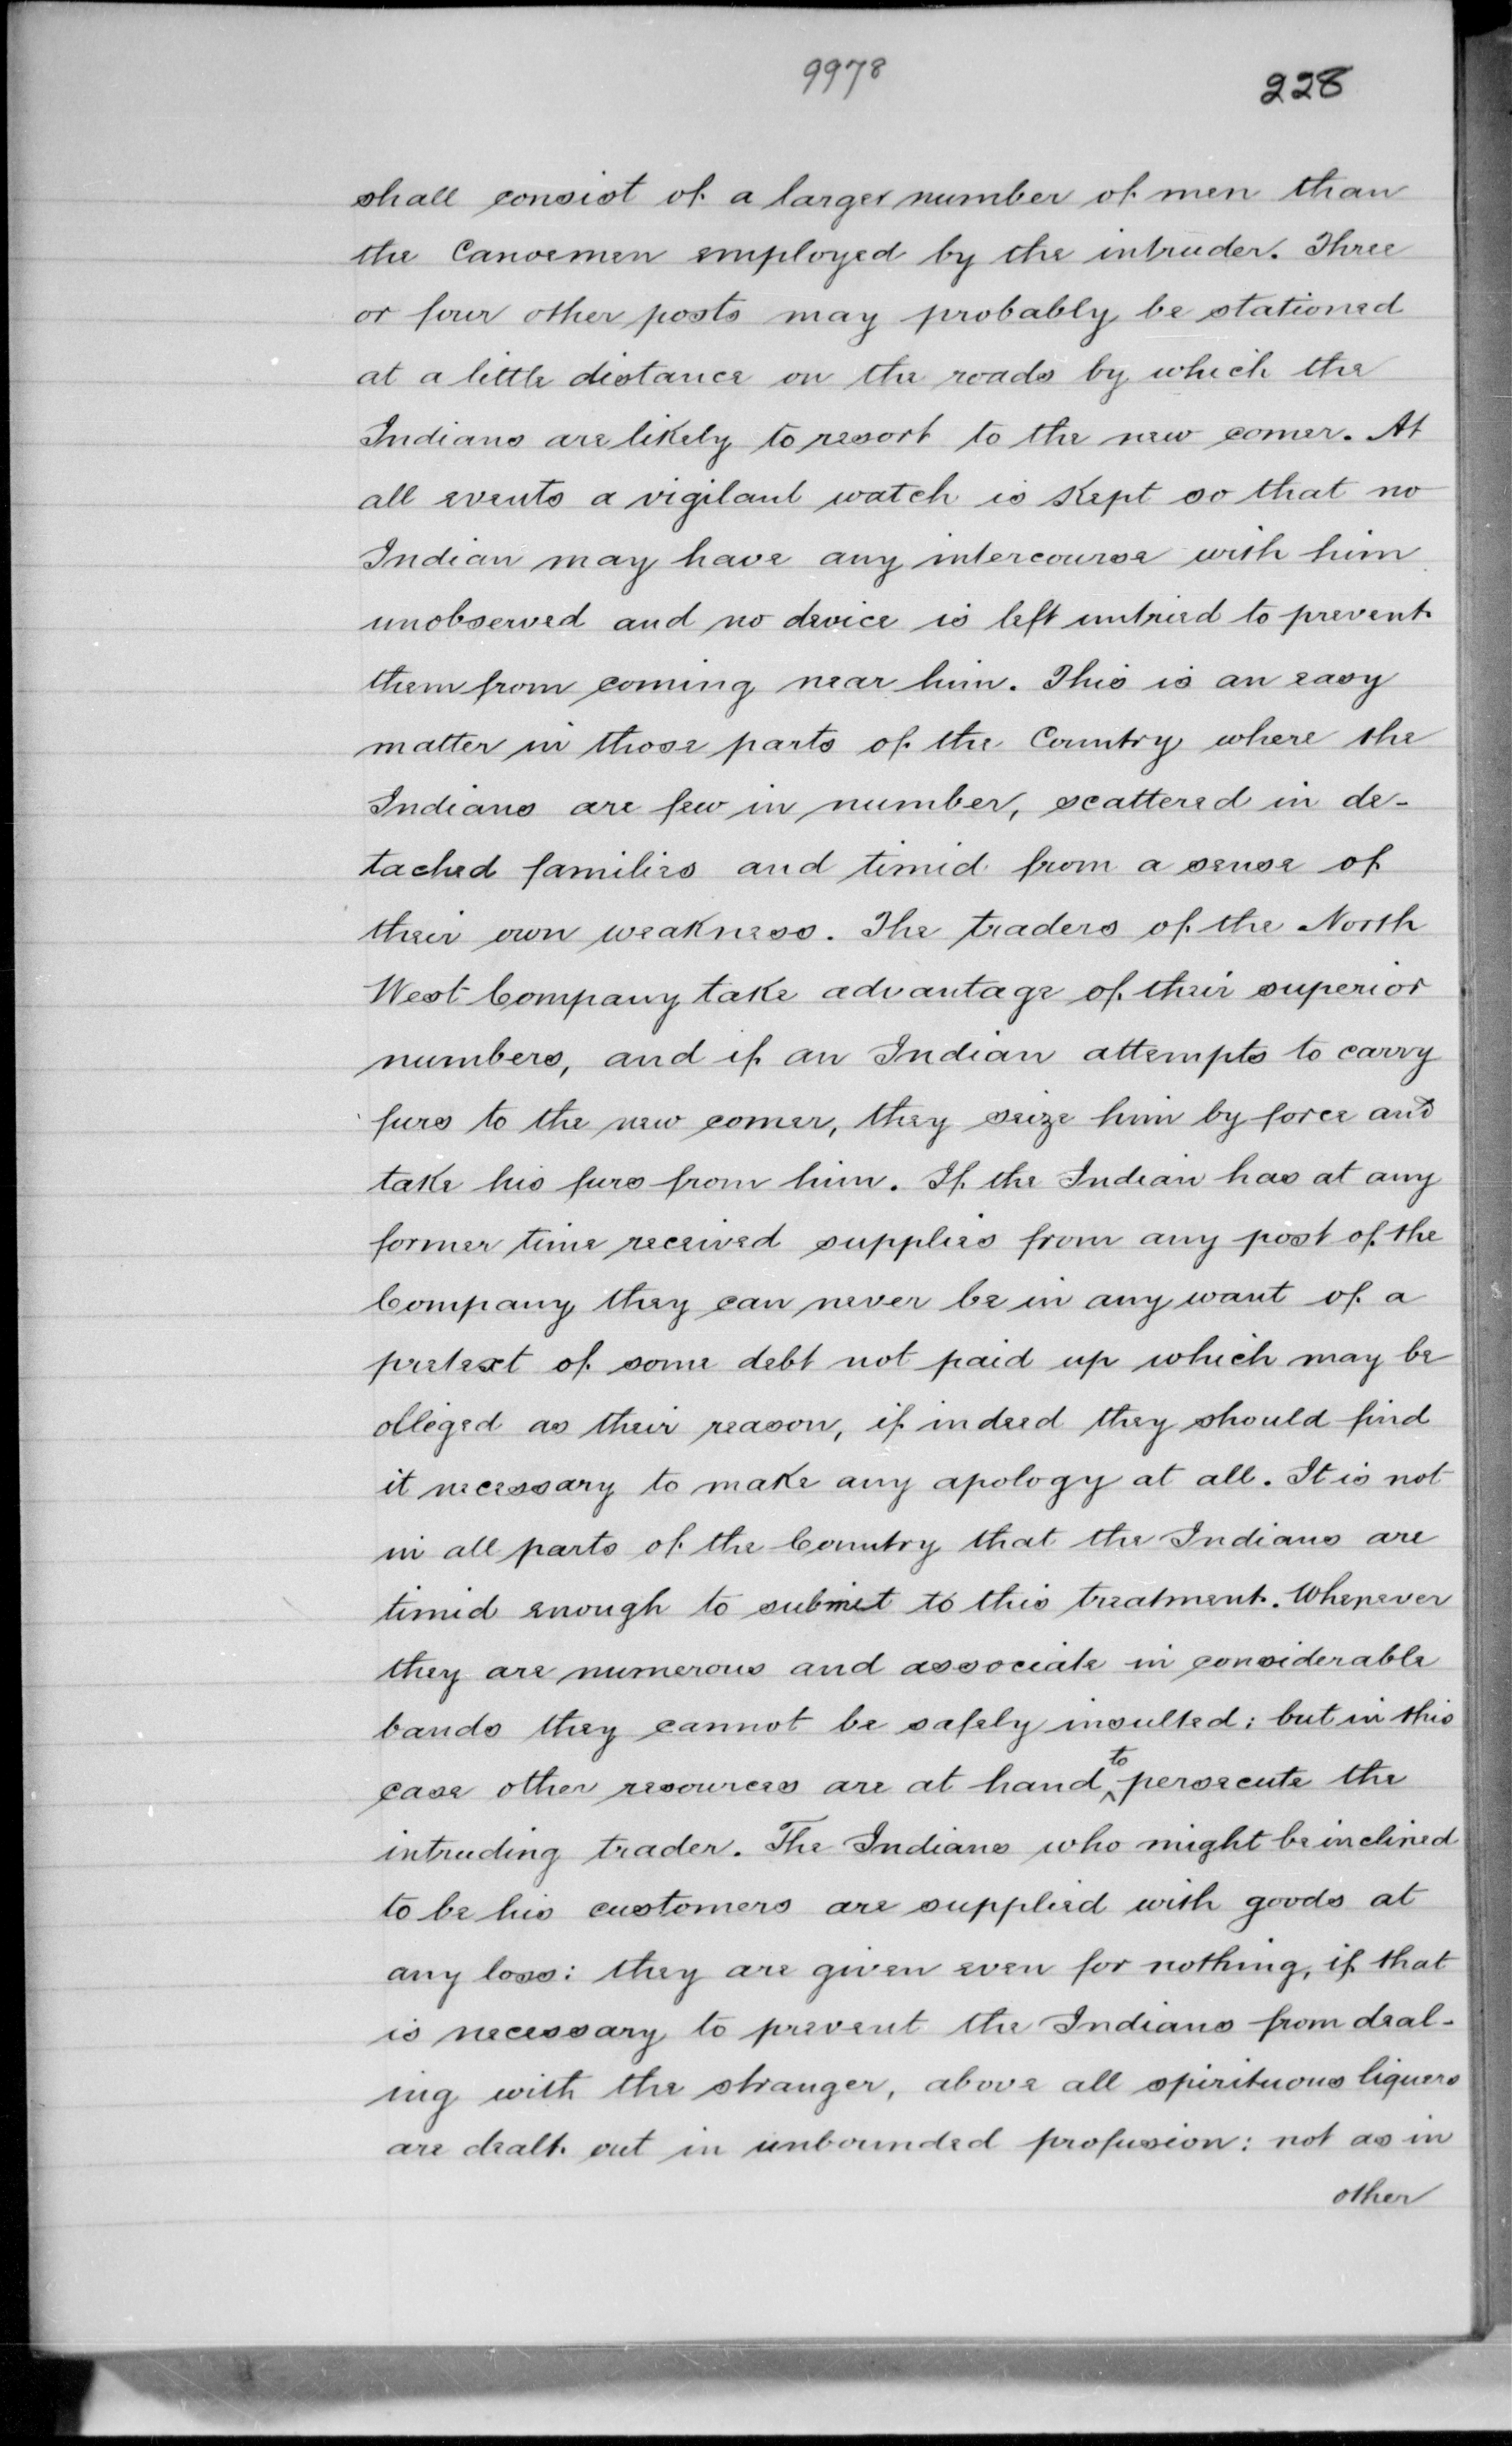 9978
228
shall consist of a larger number of men than
the Canoemen employed by the intruder. Three
or four other posts may probably be stationed
at a little distance on the roads by which the
Indians are likely to resort to the new comer. At
all events a vigilant watch is Kept so that no
Indian may have any intercourse with him
unobserved and no device is left untried to prevent
them from coming near him. This is an easy
matter in those parts of the Country where the
Indians are few in number, scattered in de-
tached families and timid from a sense of
their own weakness. The traders of the North
West Company take advantage of their superior
numbers, and if an Indian attempts to carry
furs to the new comer, they seize him by force and
take his furs from him. If the Indian has at any
former time received supplies from any post of the
Company they can never be in any want of a
pretext of some debt not paid up which may be
alleged as their reason, if indeed they should find
it necessary to make any apology at all. It is not
in all parts of the Country that the Indians are
timid enough to submit to this treatment. Whenever
they are numerous and associate in considerable
bands they cannot be safely insulted; but in this
case other resources are at hand to persecute the
intruding trader. The Indians who might be inclined
to be his customers are supplied with goods at
any loss: they are given even for nothing, if that
is necessary to prevent the Indians from deal-
ing with the stranger, above all spirituous liquers
are dealt out in unbounded profusion: not as in
other